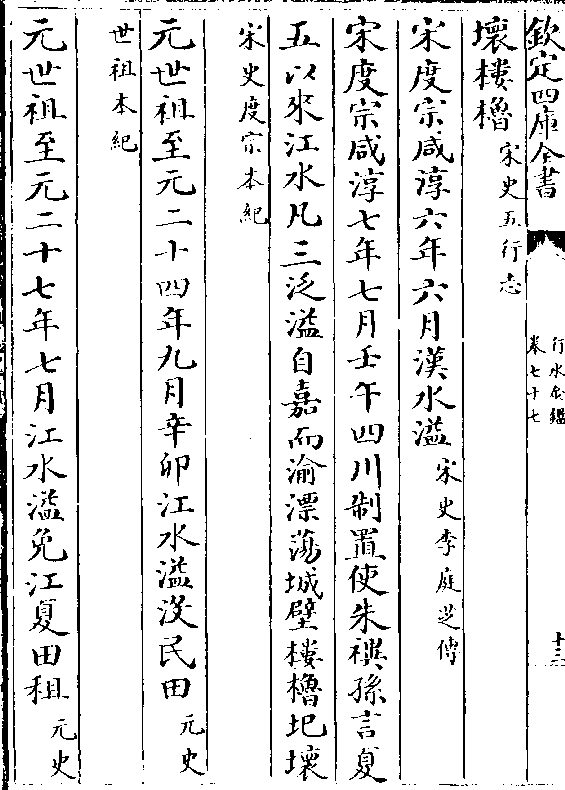 欽定四庫全書
行水金鑑
卷七十七
十三
壞樓櫓宋史五行志
宋度宗咸淳六年六月漢水溢宋史李庭芝傳
宋度宗咸淳七年七月壬午四川制置使朱禩孫言夏
五以來江水凡三泛溢自嘉而渝漂蕩城壁樓櫓圯壞
宋史度宗本紀
元世祖至元二十四年九月辛卯江水溢沒民田元史
世祖本紀
元世祖至元二十七年七月江水溢免江夏田租元史